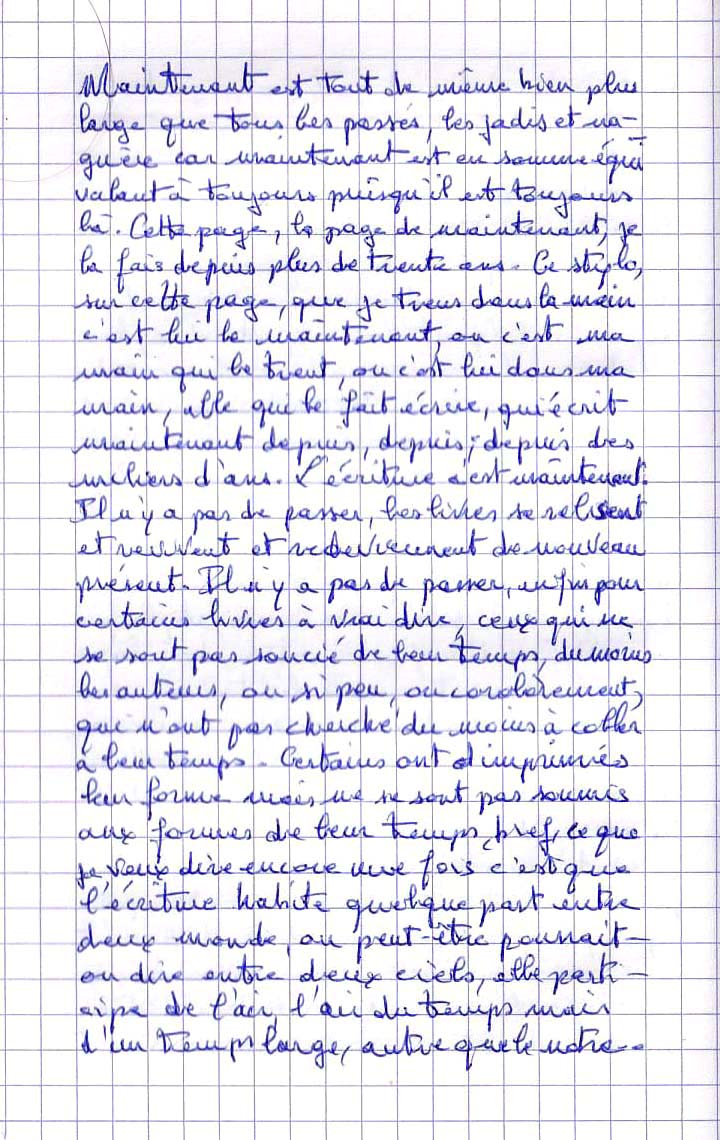 Maintenant est tout de même bien plus
large que tous les passés, les jadis et na-
guère car maintenant est en somme équi
valant à toujours puisqu'il est toujours
là. Cette page, la page de maintenant, je
la fais depuis plus de trente ans. Ce stylo,
sur cette page, que je tiens dans la main
c'est lui le maintenant, ou c'est ma
main qui le tient, ou c'est lui dans ma
main, elle qui le fait écrire, qui écrit
maintenant depuis, depuis, depuis des
milliers d'ans. L'écriture c'est maintenant.
Il n'y a pas de passer, les livres se relisent
et revivent et redeviennent de nouveau
présent. Il n'y a pas de passer, enfin pour
certains livres à vrai dire, ceux qui ne
se sont pas soucié de leur temps, du moins
les auteurs, ou si peu, ou
qui n'ont pas cherché du moins à coller
à leur temps. Certains ont imprimés
leur forme mais ne se sont pas soumis
aux formes de leur temps, bref, ce que
je veux dire encore une fois c'est que
l'écriture habite quelque part entre
deux monde, ou peut-être pourrait-
on dire entre deux ciels, elle parti-
cipe de l'air, l'air du temps mais
d'un temps large, autre que le notre..